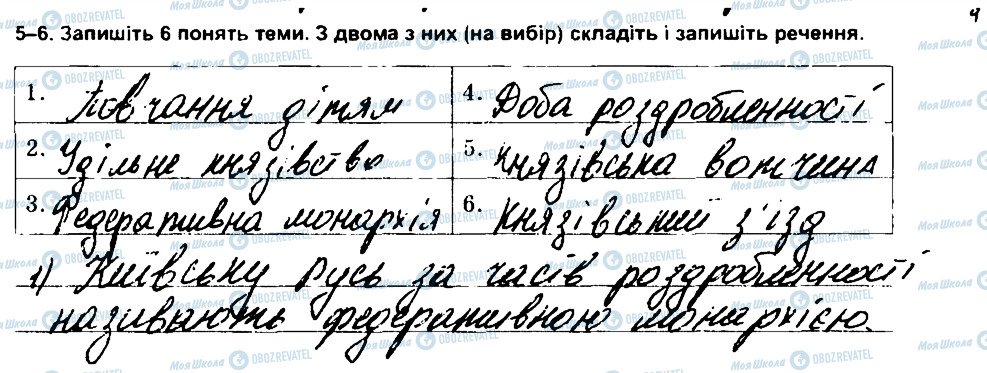 5–6. Запишіть 6 понять теми. З двома з них (на вибір) складіть і запишіть речення.
1. Повчання дітям
4. Доба роздробленності
2. Удільне князівство
5. Князівська вотчина
3. Федеративна монархія
6. Князівський з'їзд
1) Київську Русь за часів роздробленності
називають федеративною монархією.